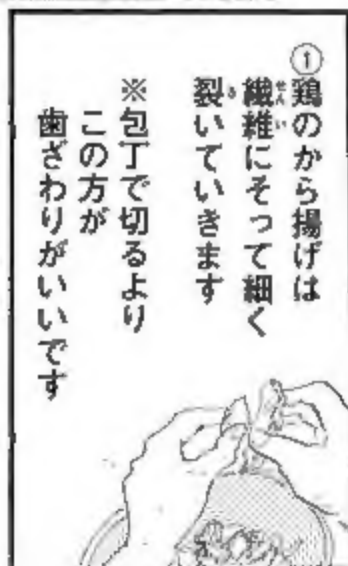 ①鶏のから揚げは
繊維にそって細く
裂いていきます
※包丁で切るより
この方が
歯ざわりがいいです